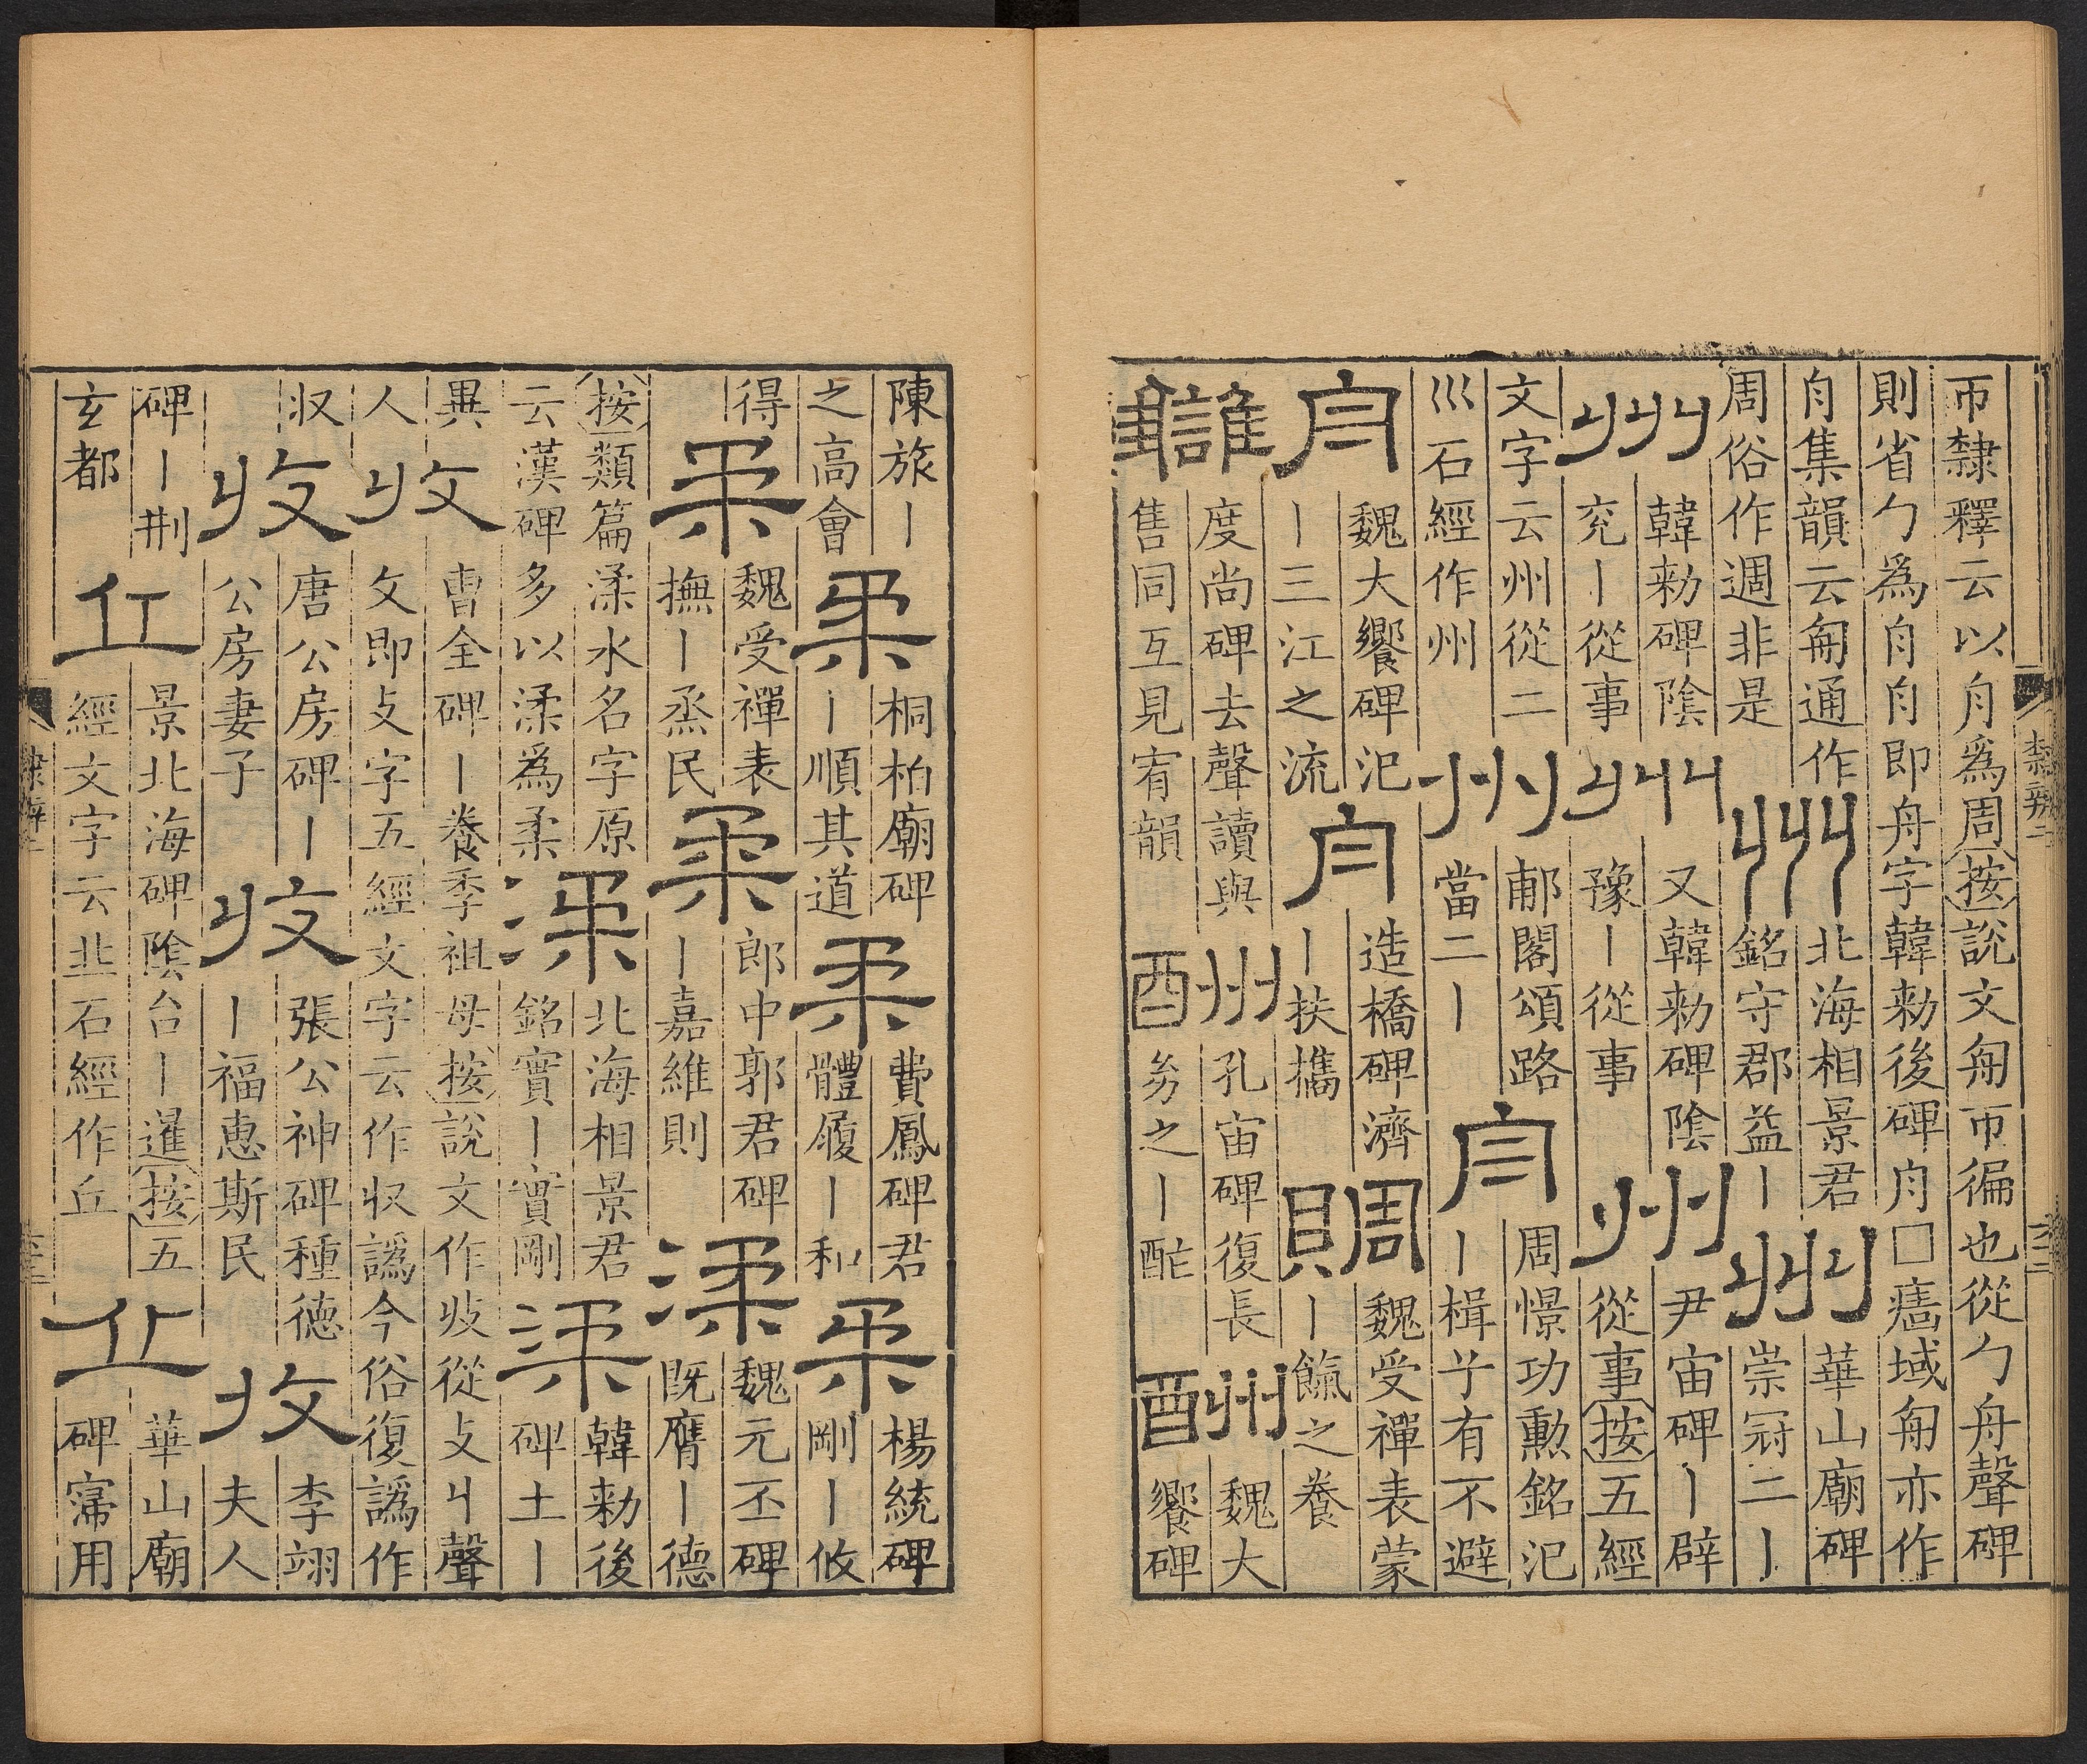 帀隸釋云以舟爲周按說文匊帀徧也從勹舟聲碑
則省勹爲舟舟即舟字韓勑後碑舟□域匊亦作
舟集韻云匊通作
周俗作週非是
州
北海相景君
銘守郡益丨
州
華山廟碑
崇冠二丨
州
韓勑碑陰
兖丨從事
州
又韓勑碑陰
豫丨從事
州
尹宙碑丨辟
從事按五經
文字云州從二
巛石經作州
州
郙閣頌路
當二丨
舟
周憬功勳銘氾
丨楫兮有不避
舟
魏大饗碑氾
丨三江之流
舟
造橋碑濟
丨扶攜
賙
魏受禪表蒙
丨餼之養
讎
度尚碑去聲讀與
售同互見宥韻
酬
孔宙碑復長
㓜之丨酡
酬
魏大
饗碑
隸辨二
陳旅丨
之高會
柔
桐柏廟碑
丨順其道
柔
費鳳碑君
體履丨和
柔
楊統碑
剛丨攸
得
柔
魏受禪表
撫丨烝民
柔
郎中郭君碑
丨嘉維則
渘
魏元丕碑
既膺丨德
按類篇渘水名字原
云漢碑多以渘爲柔
渘
北海相景君
銘實丨實剛
渘
韓勑後
碑土丨
異
人
收
曹全碑丨養季祖母按說文作收從攴丩聲
攵即攴字五經文字云作収譌今俗復譌作
収
收
唐公房碑丨
公房妻子
收
張公神碑種德
丨福惠斯民
收
李翊
夫人
碑丨荆
玄都
丘
景北海碑陰台丨暹按五
經文字云丠石經作丘
丘
華山廟
碑用